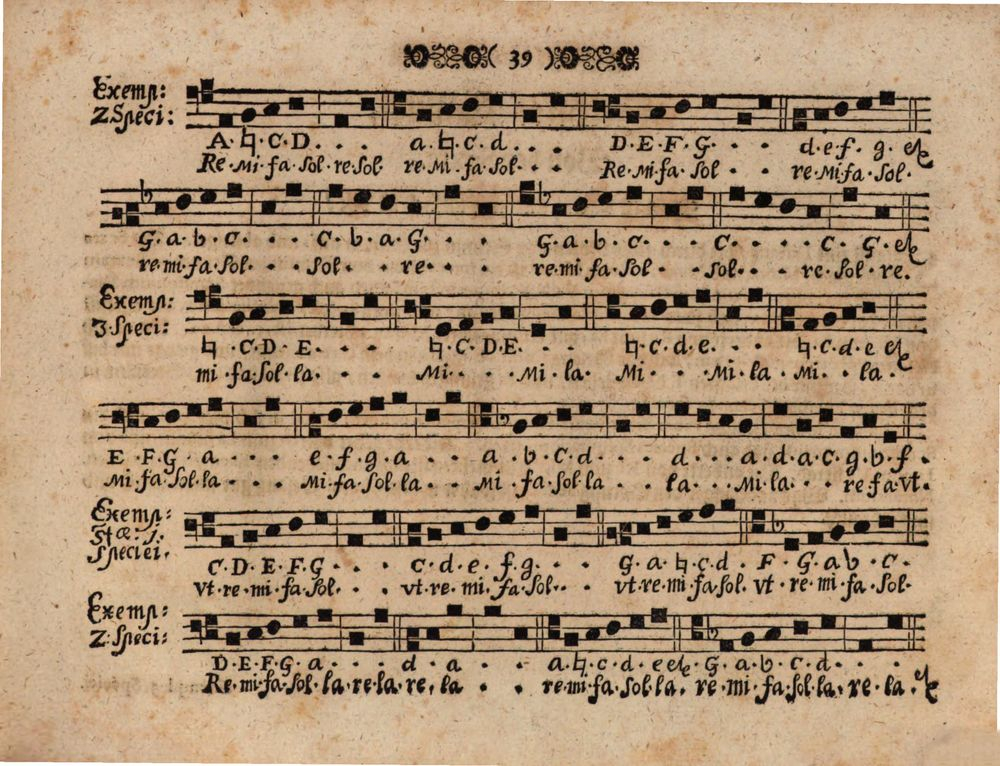 ( 39 )
Exemp:
2 Speci:
A. ♮. C. D. . . a. ♮. c. d. . . D. E. F. G. . . d. e. f. g. &
Re. mi. fa sol. re sol. re. mi. fa. sol. . . Re. mi. fa. sol . . re. mi. fa. sol.
G. a. b. c. . . c. b. a. G. . . G. a. b. c. . . c. . . . c. G. &
re. mi. fa sol. . . sol. . re. . . re. mi. fa. sol. . . sol. . . re. sol. re.
Exemp:
3. Speci:
♮. C. D. E. . . ♮. C. D. E. . . ♮. c. d. e. . . ♮. c. d. e &
mi. fa. sol. la. . . Mi. . . Mi. la. Mi. . . Mi. la. mi. . la.
E. F. G. a . . . e. f. g. a . . a. b. c. d. . . d . . . a. d. a. c. g. b. f.
Mi. fa. sol. la. . . . mi. fa. sol. la. . . mi. fa. sol. la . . . la. . . Mi. la. . . re fa vt.
Exemp:
5tæ. 1.
speciei.
C. D. E. F. G . . . c. d. e. f. g. . . G. a. ♮. c. d. F. G. a. b. c.
vt. re. mi. fa. sol. . . vt. re. mi. fa. sol. . . vt. re. mi. fa. sol. vt. re. mi. fa. sol.
Exemp:
2: Speci:
D. E. F. G. a . . . d. a . . . a. ♮. c. d. e &. G. a. b. c. d. . .
Re. mi. fa. sol. la. re. la. re. la . . re. mi. fa. sol. la. re. mi. fa. sol. la. re. la. &